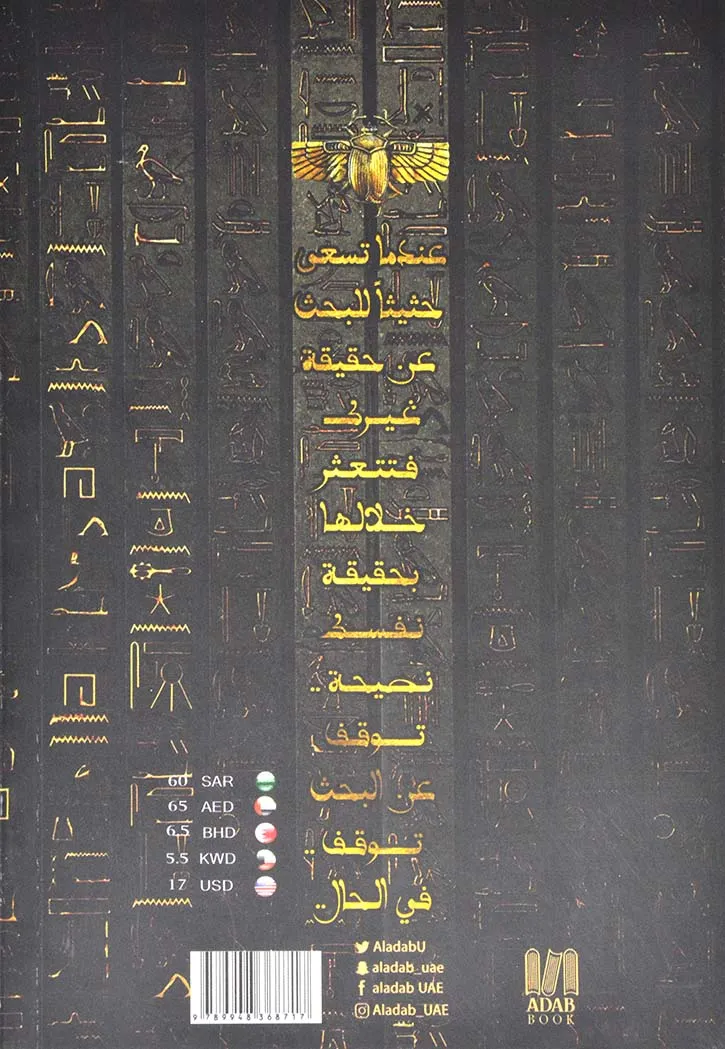 عندما تسعى
حثيثاً للبحث
عن حقيقة
غيرك
فتتعثر
خلالها
بحقيقة
نفسك
نصيحة ..
توقف
عن البحث
توقف ..
في الحال ..
60 SAR
65 AED
6.5 BHD
5.5 KWD
17 USD
AladabU
aladab_uae
aladab UAE
Aladab_UAE
9 789948 368717
ADAB
BOOK